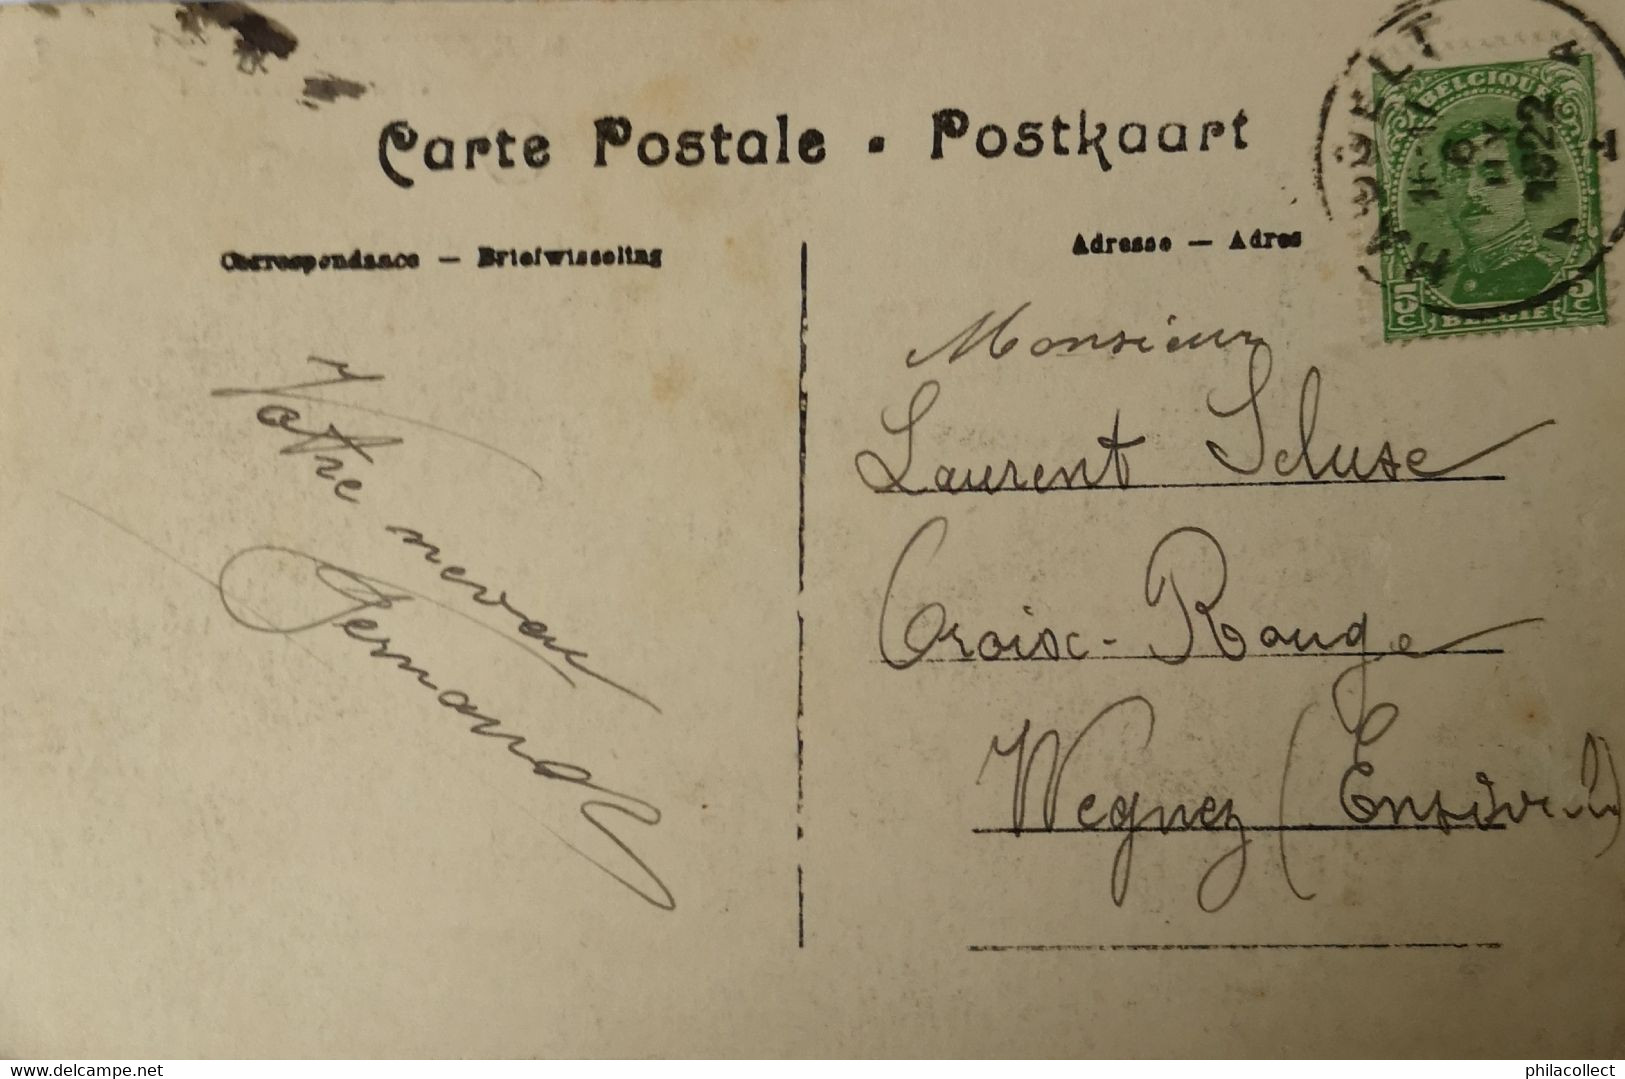 Carte Postale . Postkaart
Correspondance — Briefwisseling
Adresse — Adres
BELGIQUE
1922
5c 5c
BELGIE
Votre neveu
Fernand
Monsieur
Laurent Scluse
Croix-Rouge
Wegnez (Ensival)
delcampe.net
philacollect